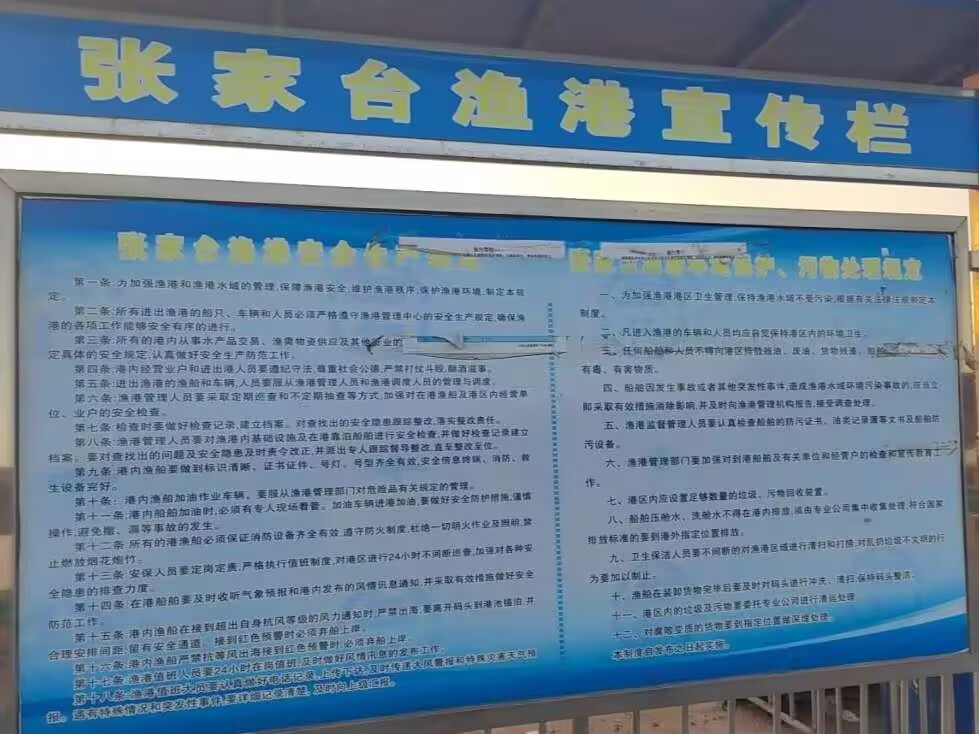 张家台渔港宣传栏
张家台渔港安全
第一条:为加强渔港和渔港水域的管理,保障渔港安全,维护渔港秩序,保护渔港环境,制定本规
定。
第二条:所有进出渔港的船只、车辆和人员必须严格遵守渔港管理中心的安全生产规定,确保渔
港的各项工作能够安全有序的进行。
第三条:所有的港内从事水产品交易、渔需物资供应及其他
定具体的安全规定,认真做好安全生产防范工作。
第四条:港内经营业户和进出港人员要遵纪守法,尊重社会公德,严禁打仗斗殴,酗酒滋事。
第五条:进出渔港的渔船和车辆,人员要服从渔港管理人员和渔港调度人员的管理与调度。
第六条:渔港管理人员要采取定期巡查和不定期抽查等方式,加强对在港渔船及港区内经营单
位、业户的安全检查。
第七条:检查时要做好检查记录,建立档案。对查找出的安全隐患跟踪整改,落实整改责任。
第八条:渔港管理人员要对渔港内基础设施及在港靠泊船舶进行安全检查,并做好检查记录建立
档案;要对查找出的问题及安全隐患及时责令改正,并派出专人跟踪督导整改,直至整改至位。
第九条:港内渔船要做到标识清晰、证书证件、号灯、号型齐全有效,安全信息终端、消防、救
生设备完好。
第十条:港内渔船加油作业车辆,要服从渔港管理部门对危险品有关规定的管理。
第十一条:港内船舶加油时,必须有专人现场看管。加油车辆进港加油,要做好安全防护措施,谨慎
操作,避免撒、漏等事故的发生。
第十二条:所有的港渔船必须保证消防设备齐全有效,遵守防火制度,杜绝一切明火作业及照明,禁
止燃放烟花炮竹。
第十三条:安保人员要定岗定责,严格执行值班制度,对港区进行24小时不间断巡查,加强对各种安
全隐患的排查力度。
第十四条:在港船舶要及时收听气象预报和港内发布的风情讯息通知,并采取有效措施做好安全
防范工作。
第十五条:港内渔船在接到超出自身抗风等级的风力通知时,严禁出海,要离开码头到港池锚泊,并
合理安排间距,留有安全通道。接到红色预警时必须弃船上岸。
第十六条:港内渔船严禁抗等风出海接到红色预警时,必须弃船上岸。
第十七条:渔港值班人员要24小时在岗值班,及时做好风情汛息的发布工作。
第十八条:渔港值班人员要认真做好电话记录,上传下达,及时传递大风警报和特殊灾害天气预
报。遇有特殊情况和突发性事件,要详细记录清楚,及时向上级汇报。
保护、污物处理规定
一、为加强渔港港区卫生管理,保持渔港水域不受污染,根据有关法律法规制定本
制度。
二、凡进入渔港的车辆和人员均应自觉保持港区内的环境卫生。
三、任何船舶和人员不得向港区排放残油、废油、货物残渣、
有毒、有害物质。
四、船舶因发生事故或者其他突发性事件,造成渔港水域环境污染事故的,应当立
即采取有效措施消除影响,并及时向渔港管理机构报告,接受调查处理。
五、渔港监督管理人员要认真检查船舶的防污证书、油类记录簿等文书及船舶防
污设备。
六、渔港管理部门要加强对到港船舶及有关单位和经营户的检查和宣传教育工
作。
七、港区内应设置足够数量的垃圾、污物回收装置。
八、船舶压舱水、洗舱水不得在港内排放,须由专业公司集中收集处理,符合国家
排放标准的要到港外指定位置排放。
九、卫生保洁人员要不间断的对渔港区域进行清扫和打捞,对乱扔垃圾不文明的行
为要加以制止。
十、渔船在装卸货物完毕后要及时对码头进行冲洗、清扫,保持码头整洁。
十一、港区内的垃圾及污物要委托专业公司进行清运处理。
十二、对腐败变质的货物要到指定位置做深埋处理。
本制度自发布之日起实施。